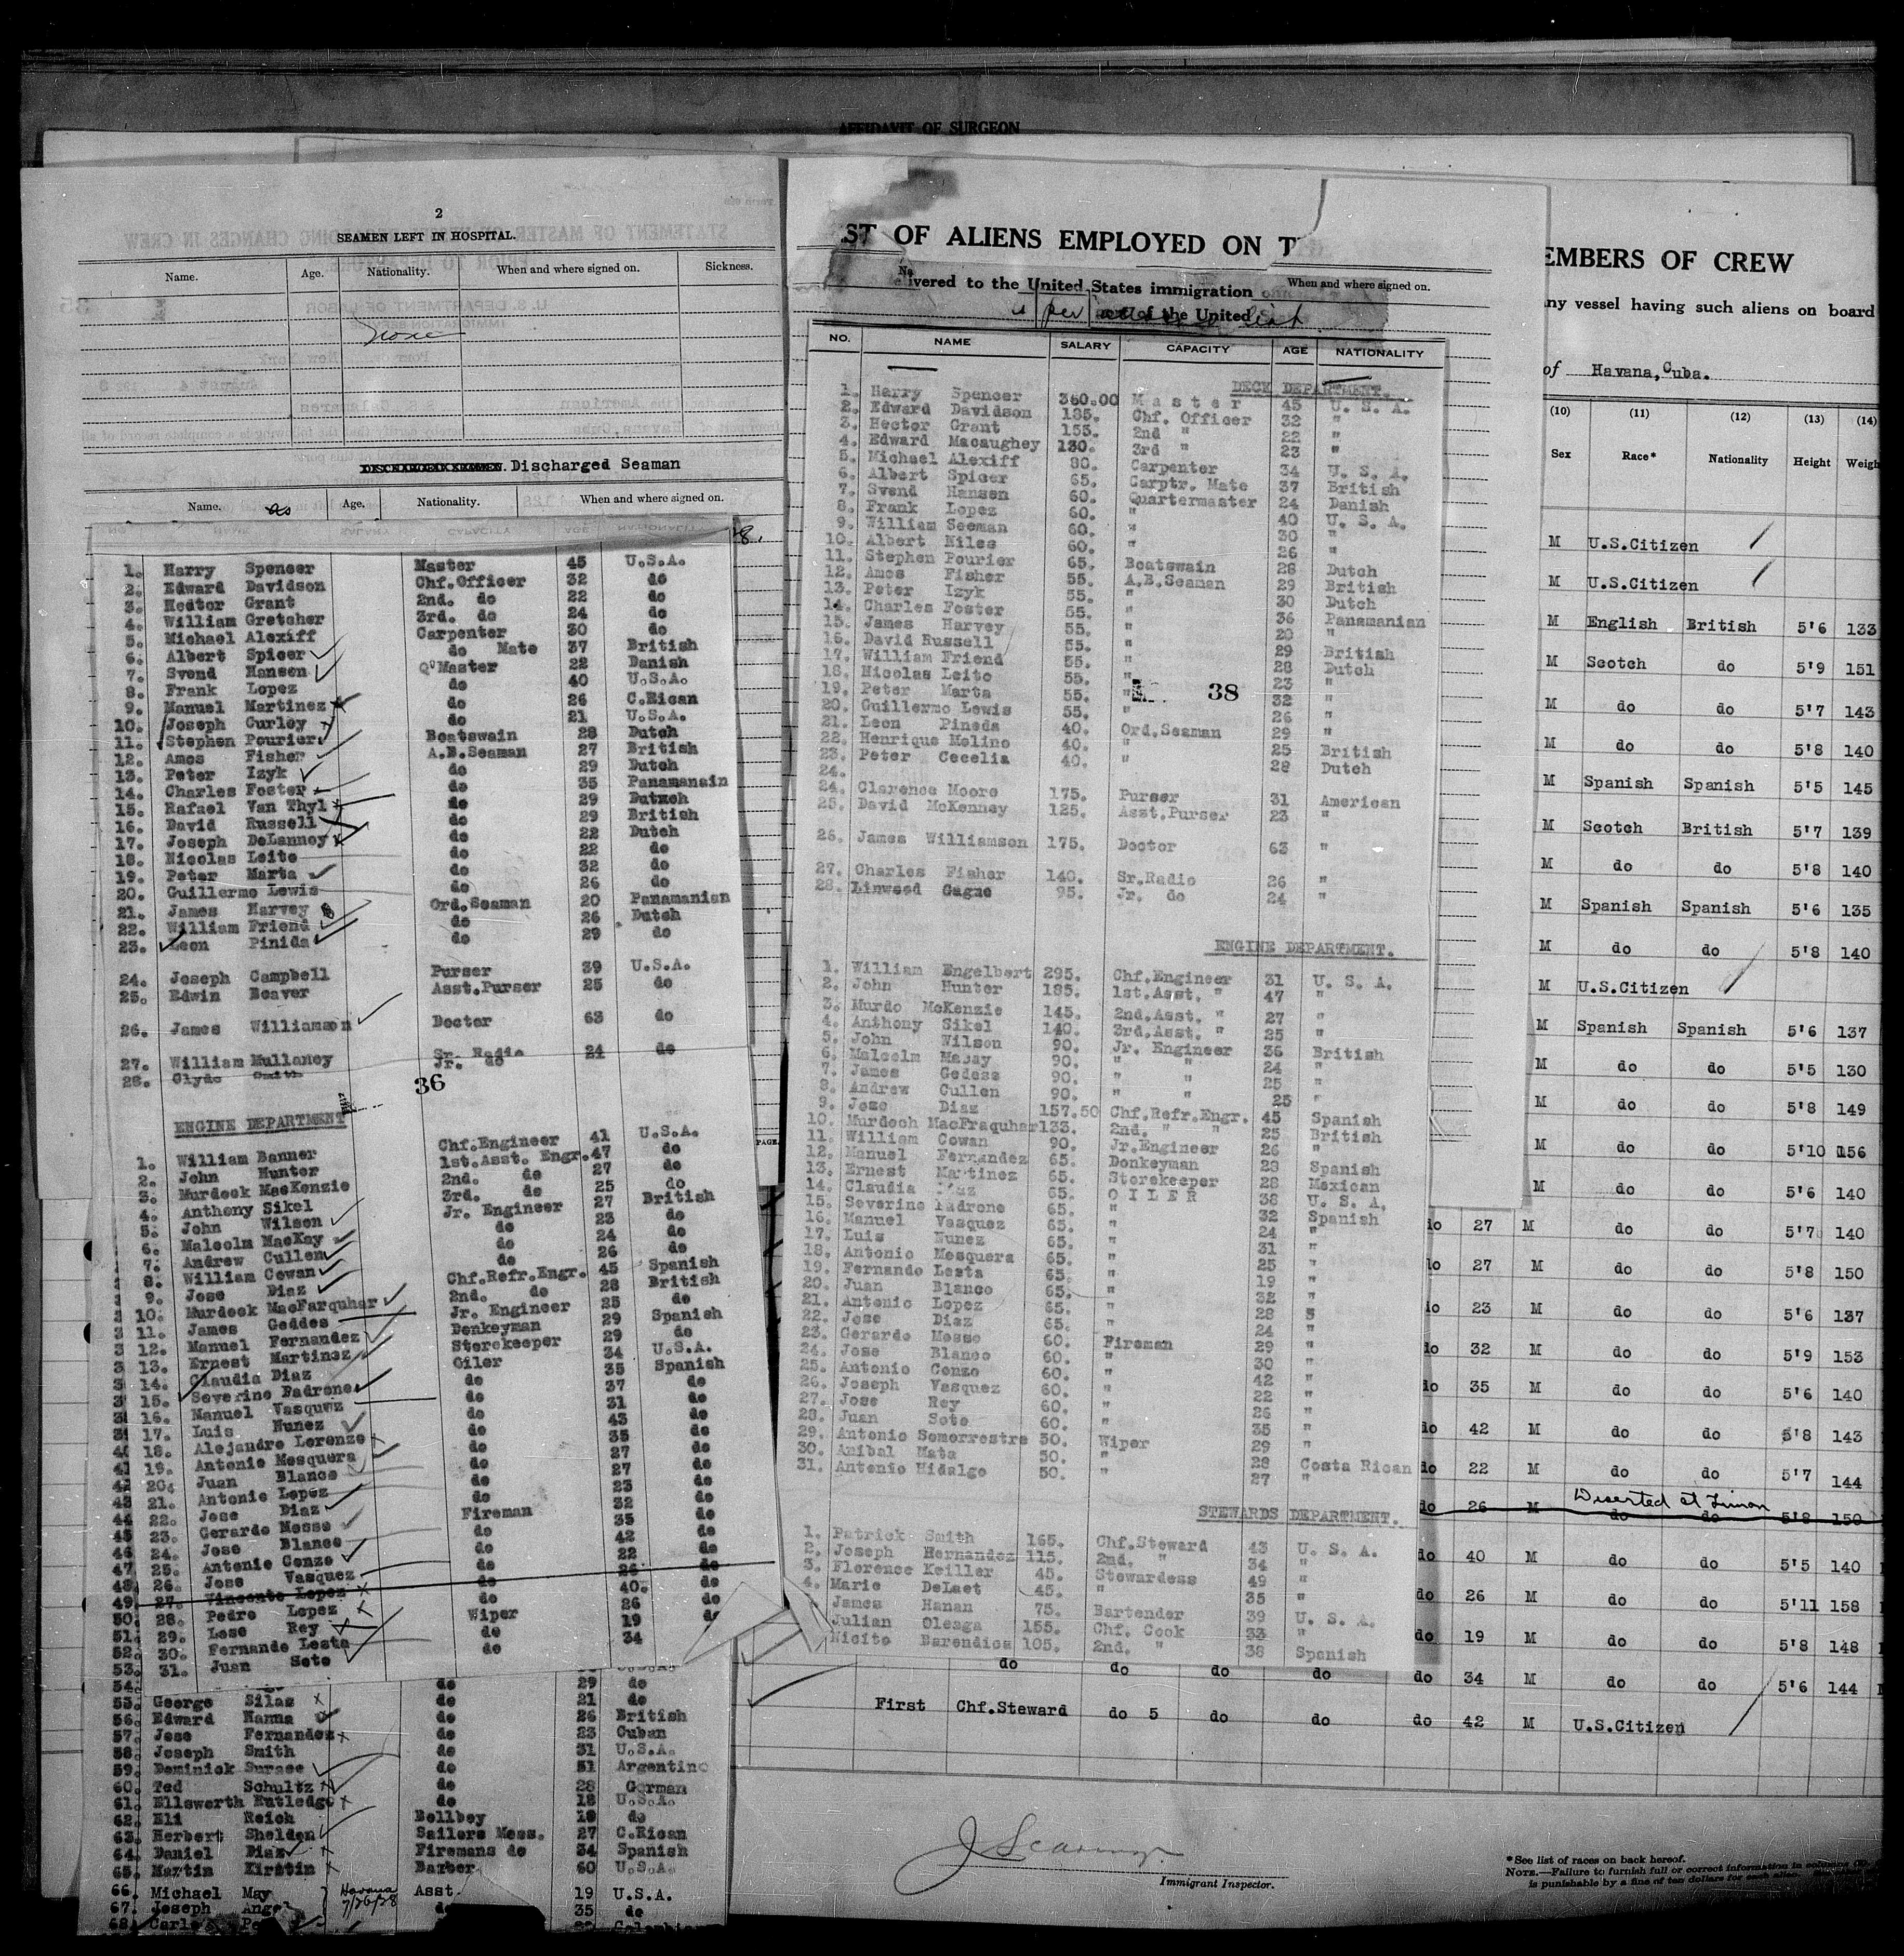 AFFIDAVIT OF SURGEON
2
SEAMEN LEFT IN HOSPITAL.
Name. Age. Nationality. When and where signed on. Sickness.
none
Discharged Seaman
Name. Age. Nationality. When and where signed on.
1. Harry Spencer Master 45 U.S.A.
2. Edward Davidson Chf.Officer 32 do
3. Hector Grant 2nd. do 22 do
4. William Gretcher 3rd. do 24 do
5. Michael Alexiff Carpenter 30 do
6. Albert Spicer do Mate 37 British
7. Svend Hansen Q'Master 22 Danish
8. Frank Lopez do 40 U.S.A.
9. Manuel Martinez do 26 C.Rican
10. Joseph Gurley do 21 U.S.A.
11. Stephen Pourier Boatswain 28 Dutch
12. Amos Fisher A.B.Seaman 27 British
13. Peter Izyk do 29 Dutch
14. Charles Foster do 35 Panamanain
15. Rafael Van Thyl do 29 Dutch
16. David Russell do 29 British
17. Joseph DeLannoy do 22 Dutch
18. Nicolas Leito do 22 do
19. Peter Marta do 32 do
20. Guillermo Lewis do 26 do
21. James Harvey Ord.Seaman 20 Panamanian
22. William Friend do 26 Dutch
23. Leon Pinida do 29 do
24. Joseph Campbell Purser 39 U.S.A.
25. Edwin Beaver Asst.Purser 25 do
26. James Williamson Doctor 63 do
27. William Mullaney Sr. Radio 24 do
28. Clyde Smith Jr. do
36
ENGINE DEPARTMENT
1. William Banner Chf.Engineer 41 U.S.A.
2. John Hunter 1st.Asst. Engr. 47 do
3. Murdock MacKenzie 2nd. do 27 do
4. Anthony Sikel 3rd. do 25 do
5. John Wilson Jr. Engineer 27 British
6. Malcolm MacKay do 23 do
7. Andrew Cullen do 24 do
8. William Cowan do 26 do
9. Jose Diaz Chf.Refr.Engr. 45 Spanish
10. Murdock MacFarquhar 2nd. do 28 British
11. James Geddes Jr. Engineer 25 do
12. Manuel Fernandez Donkeyman 29 Spanish
13. Ernest Martinez Storekeeper 29 do
14. Claudia Diaz Oiler 34 U.S.A.
15. Severino Padrone do 35 Spanish
16. Manuel Vasquez do 37 do
17. Luis Nunez do 31 do
18. Alejandro Lorenzo do 43 do
19. Antonio Mesquera do 35 do
20. Juan Blanco do 27 do
21. Antonio Lopez do 27 do
22. Jose Diaz do 23 do
23. Gerardo Mosso Fireman 32 do
24. Jose Blanco do 35 do
25. Antonio Conzo do 42 do
26. Jose Vasquez do 22 do
27. Vincente Lopez do 26 do
28. Pedro Lopez do 40. do
29. Lose Rey do 26 do
30. Fernando Lesta Wiper 19 do
31. Juan Soto do 34
54. do 29 do
55. George Silas do 21 do
56. Edward Hanna do 26 British
57. Jose Fernandez do 23 Cuban
58. Joseph Smith do 31 U.S.A.
59. Dominick Surace do 51 Argentino
60. Ted Schultz do 28 German
61. Ellsworth Rutledge do 18 U.S.A.
62. Eli Reich Bellboy 18 do
63. Herbert Shelden Sailors Mess. 27 C.Rican
64. Daniel Diaz Firemans do 34 Spanish
65. Martin Kirstin Barber 60 U.S.A.
66. Michael May Havana Asst. 19 U.S.A.
67. Joseph Angel 7/26/28 do 35 do
68. Carlo
ST OF ALIENS EMPLOYED ON T
No. When and where signed on.
ivered to the United States immigration
as per list
of the United
NO. NAME SALARY CAPACITY AGE NATIONALITY
DECK DEPARTMENT.
1. Harry Spencer 350.00 Master 45 U. S. A.
2. Edward Davidson 185. Chf. Officer 32 "
3. Hector Grant 155. 2nd " 22 "
4. Edward Macaughey 130. 3rd " 23 "
5. Michael Alexiff 80. Carpenter 34 U. S. A.
6. Albert Spicer 65. Carptr. Mate 37 British
7. Svend Hansen 60. Quartermaster 24 Danish
8. Frank Lopez 60. " 40 U. S. A.
9. William Seeman 60. " 30 "
10. Albert Niles 60. " 26 "
11. Stephen Pourier 65. Boatswain 28 Dutch
12. Amos Fisher 55. A.B.Seaman 29 British
13. Peter Izyk 55. " 30 Dutch
14. Charles Foster 55. " 36 Panamanian
15. James Harvey 55. " 20 "
16. David Russell 55. " 29 British
17. William Friend 55. " 28 Dutch
18. Nicolas Leito 55. " 23 "
19. Peter Marta 55. " 32 "
20. Guillermo Lewis 55. " 26 "
38
21. Leon Pineda 40. Ord.Seaman 29 "
22. Henrique Molino 40. " 25 British
23. Peter Cecelia 40. " 28 Dutch
24.
24. Clarence Moore 175. Purser 31 American
25. David McKenney 125. Asst.Purser 23 "
26. James Williamson 175. Doctor 63 "
27. Charles Fisher 140. Sr.Radio 26 "
28. Linwood Gagne 95. Jr. do 24 "
ENGINE DEPARTMENT.
1. William Engelbert 295. Chf.Engineer 31 U. S. A.
2. John Hunter 185. 1st.Asst. " 47 "
3. Murdo McKenzie 145. 2nd.Asst. " 27 "
4. Anthony Sikel 140. 3rd.Asst. " 25 "
5. John Wilson 90. Jr. Engineer 36 British
6. Malcolm Macay 90. " " 24 "
7. James Gedess 90. " " 25 "
8. Andrew Cullen 90. " " 25 "
9. Jose Diaz 157.50 Chf.Refr.Engr. 45 Spanish
10. Murdoch MacFraquhar 133. 2nd. " " 25 British
11. William Cowan 90. Jr.Engineer 26 "
12. Manuel Fernandez 65. Donkeyman 29 Spanish
13. Ernest Martinez 65. Storekeeper 28 Mexican
14. Claudia Diaz 65. OILER 38 U. S. A.
15. Severino Padrone 65. " 32 Spanish
16. Manuel Vasquez 65. " 24 "
17. Luis Nunez 65. " 31 "
18. Antonio Mesquera 65. " 25 "
19. Fernando Lesta 65. " 19 "
20. Juan Blanco 65. " 32 "
21. Antonio Lopez 65. " 28 S
22. Jose Diaz 65. " 24 "
23. Gerardo Mosso 60. Fireman 29 "
24. Jose Blanco 60. " 30 "
25. Antonio Conzo 60. " 42 "
26. Joseph Vasquez 60. " 22 "
27. Jose Rey 60. " 26 "
28. Juan Soto 60. " 35 "
29. Antonio Somorrostro 50. Wiper 29 "
30. Anibal Mata 50. " 28 Costa Rican
31. Antonio Hidalgo 50. " 27 "
STEWARDS DEPARTMENT.
1. Patrick Smith 165. Chf.Steward 43 U. S. A.
2. Joseph Hernandez 115. 2nd. " 34 "
3. Florence Keiller 45. Stewardess 49 "
4. Marie DeLaet 45. " 35 "
James Hanan 75. Bartender 39 U. S. A.
Julian Oleaga 155. Chf. Cook 33 "
Nicito Barendica 105. 2nd. " 38 Spanish
EMBERS OF CREW
any vessel having such aliens on board
of Havana, Cuba.
(10) (11) (12) (13) (14)
Sex Race* Nationality Height Weigh
M U.S.Citizen
M U.S.Citizen
M English British 5'6 133
M Scotch do 5'9 151
M do do 5'7 143
M do do 5'8 140
M Spanish Spanish 5'5 145
M Scotch British 5'7 139
M do do 5'8 140
M Spanish Spanish 5'6 135
M do do 5'8 140
M U.S.Citizen
M Spanish Spanish 5'6 137
M do do 5'5 130
M do do 5'8 149
M do do 5'10 156
M do do 5'6 140
do 27 M do do 5'7 140
do 27 M do do 5'8 150
do 23 M do do 5'6 137
do 32 M do do 5'9 153
do 35 M do do 5'6 140
do 42 M do do 5'8 143
do 22 M do do 5'7 144
Deserted at Limon
do 26 M do do 5'8 150
do 40 M do do 5'5 140
do 26 M do do 5'11 158
do 19 M do do 5'8 148
do do do do do 34 M do do 5'6 144
First Chf.Steward do 5 do do do 42 M U.S.Citizen
Immigrant Inspector.
*See list of races on back hereof.
NOTE.—Failure to furnish full or correct information in columns
is punishable by a fine of ten dollars for each alien.